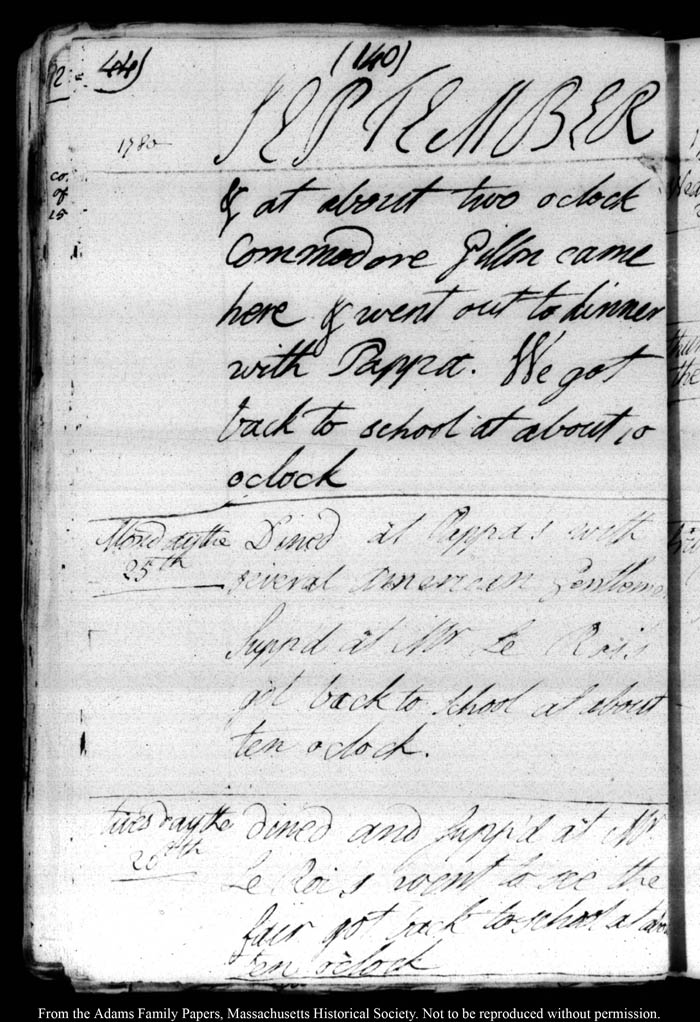 44)
(140)
SEPTEMBER
1780
co.
of
15
& at about two oclock
Commodore Gillon came
here & went out to dinner
with Pappa. We got
back to school at about 10
oclock
Monday the
25th
Dined at Pappa's with
several american Gentlemen
supp'd at Mr Le Roi's
got back to school at about
ten oclock.
tuesday the
26th
dined and supp'd at Mr
Le Roi's went to see the
fair got back to school at about
ten oclock
From the Adams Family Papers, Massachusetts Historical Society. Not to be reproduced without permission.